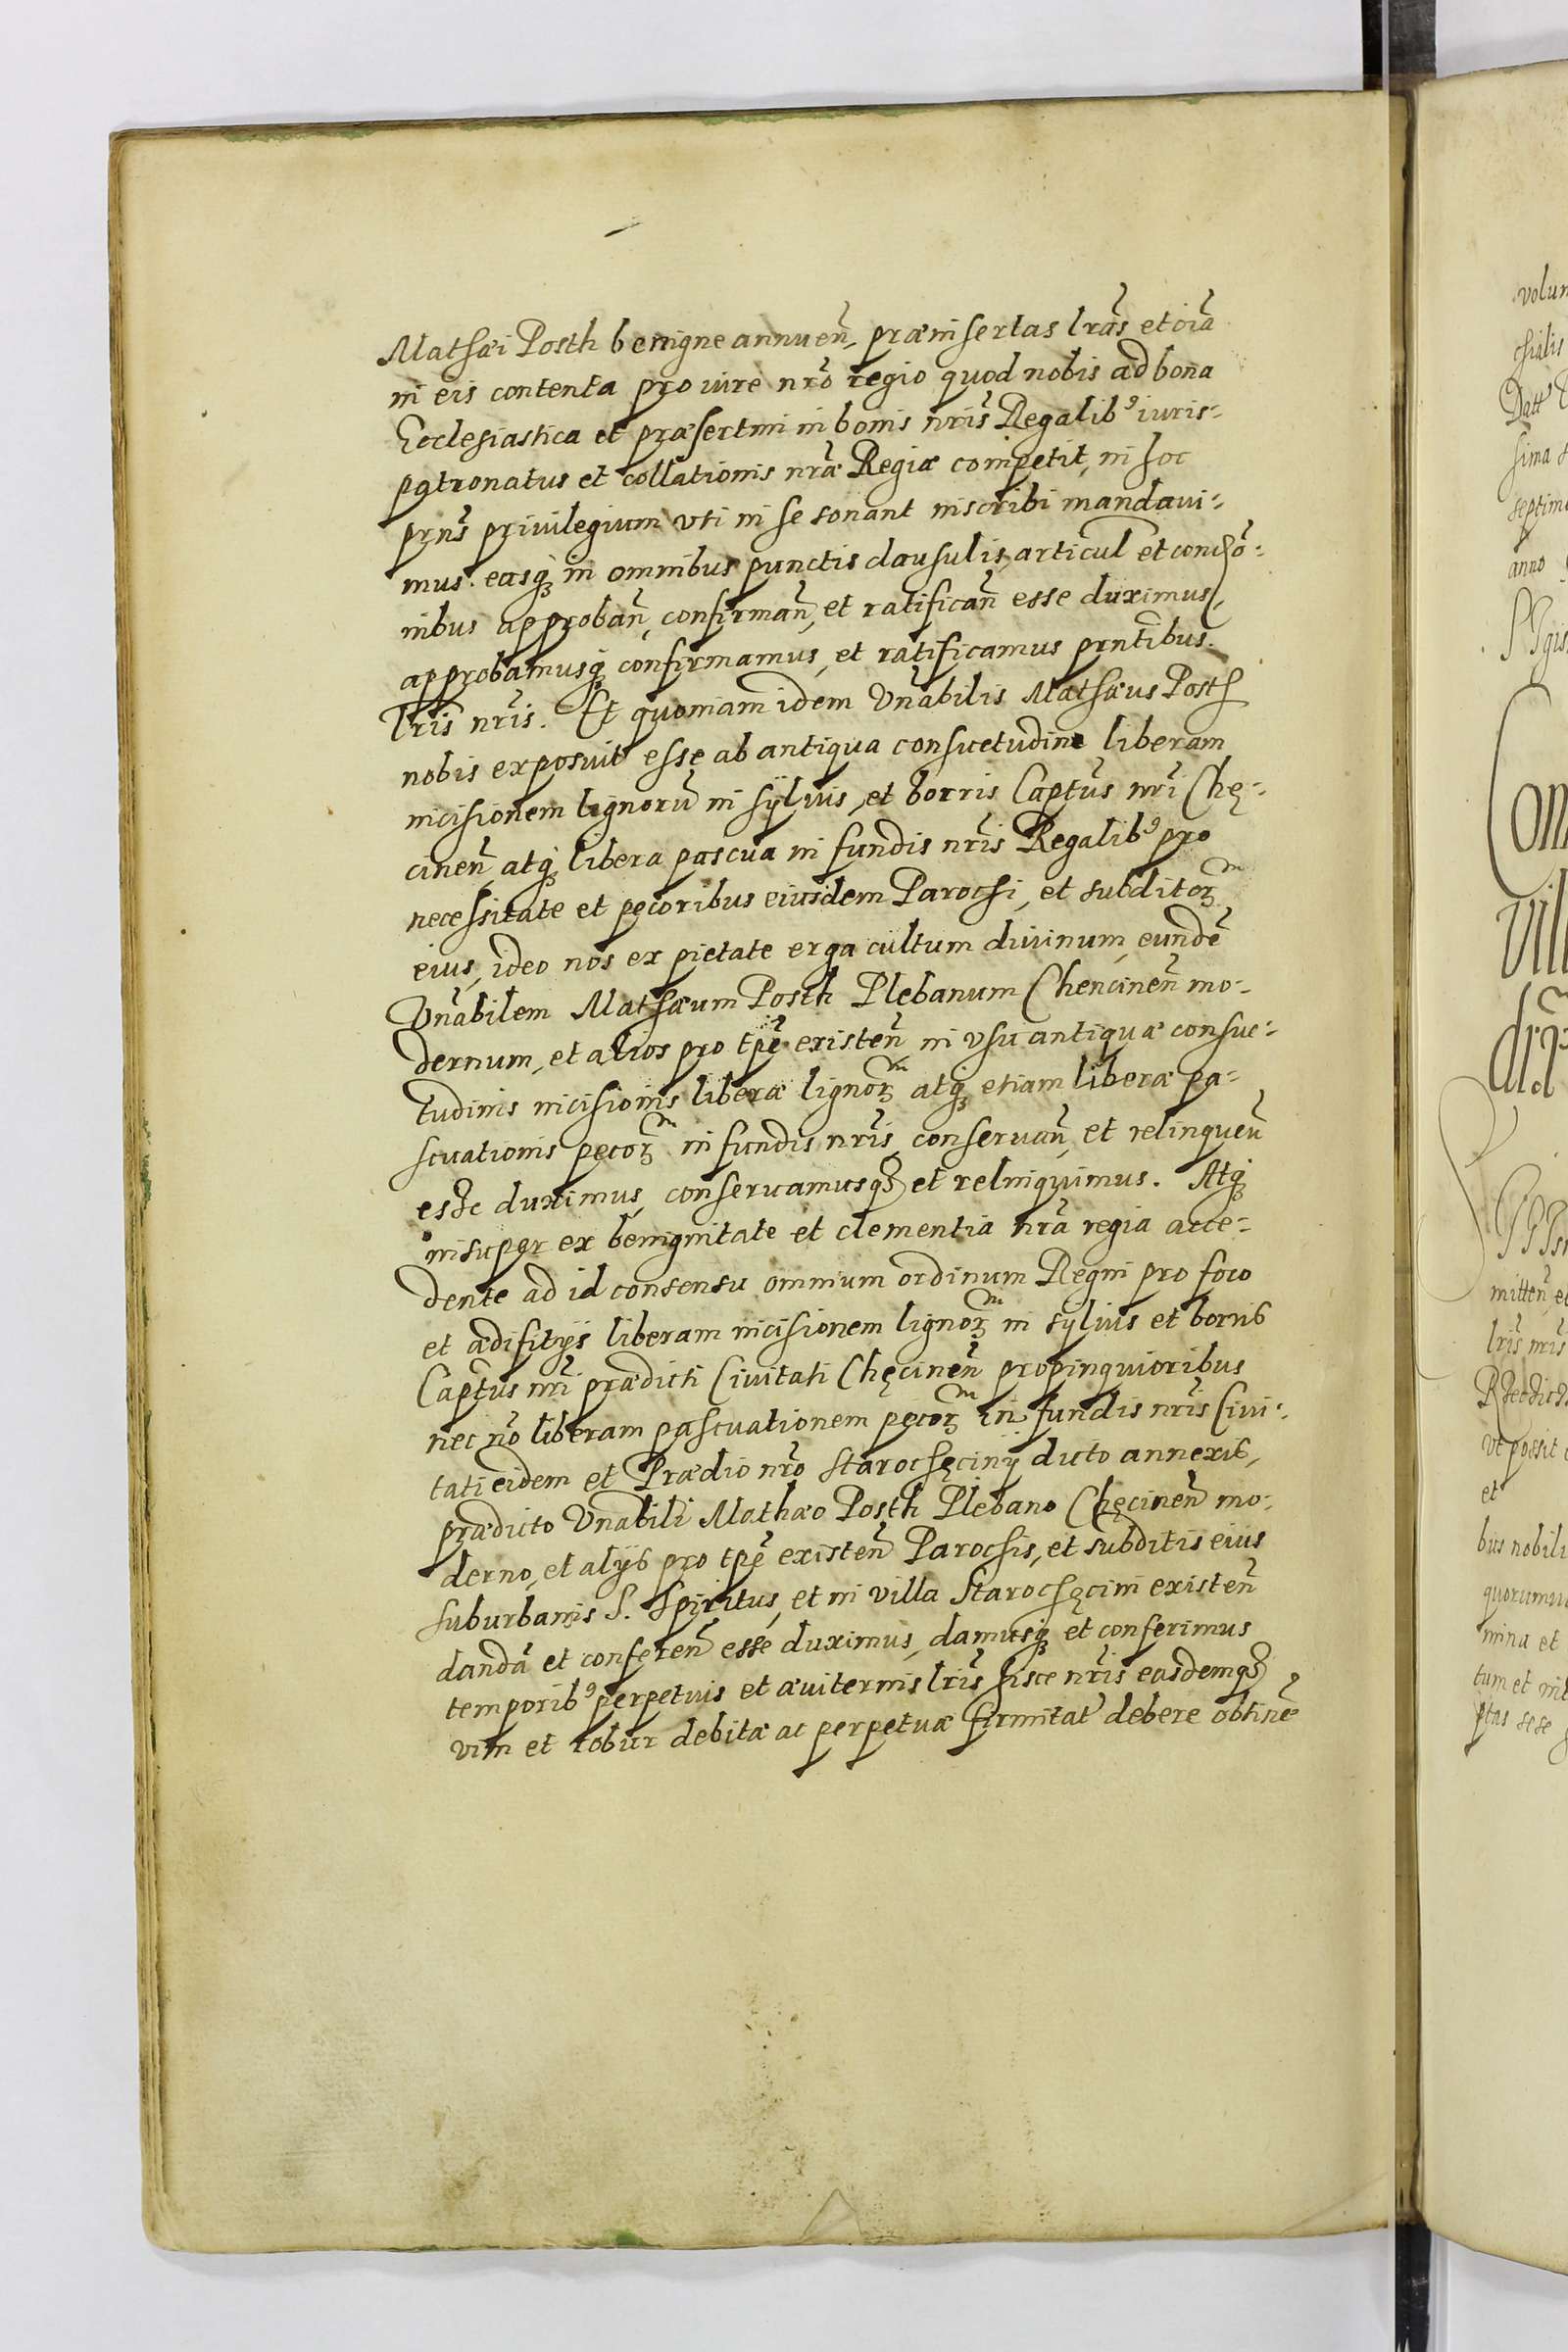 Mathæi Posth benigne annuen̄, præinsertas lr̃as et oĩa
in eis contenta pro iure nr̃o regio quod nobis ad bona
Ecclesiastica et præsertim in bonis nr̃is Regalibꝰ iuris-
patronatus et collationis nr̃æ Regiæ competit, in hoc
pr̃ns privilegium uti in se sonant inscribi mandavi-
mus. easqꝫ in omnibus punctis clausulis, articul̃ et condiõ-
nibus approban̄, confirman̄, et ratifican̄ esse duximus,
approbamusqꝫ confirmamus, et ratificamus prñtibus.
lr̃is nr̃is. Et quoniam idem Vñabilis Mathæus Posth
nobis exposuit esse ab antiqua consuetudine liberam
incisionem lignorũ in sÿluis, et borris Captũs nr̃i Chę-
cinen̄ atqꝫ libera pascua in fundis nr̃is Regalibꝰ pro
necessitate et pecoribus eiusdem Parochi, et subditoꝝᵐ
eius, ideo nos ex pietate erga cultum diuinum, eundẽ
Vñabilem Mathæum Posth Plebanum Chencinen̄ mo-
dernum, et alios pro tp̃e existen̄ in vsu antiquæ consue-
tudinis incisionis liberæ lignoꝝᵐ atqꝫ etiam liberæ pa-
scuationis pecoꝝᵐ in fundis nr̃is, conseruan̄, et relinquen̄
esse duximus, conseruamusqꝫ et relinquimus. Atqꝫ
insuper ex benignitate et clementia nr̃a regia acce-
dente ad id consensu omnium ordinum Regni pro foco
et ædifitÿs liberam incisionem lignoꝝᵐ in syluis et borris
Captũs nr̃i prædicti Ciuitati Chęcinen̄ propinquioribus
nec nõ liberam pascuationem pecoꝝᵐ in fundis nr̃is Ciui-
tati eidem et Prædio nr̃o Starochęcinÿ dicto annexis,
prædicto Vñabili Mathæo Posth Plebano Chęcinen̄ mo-
derno, et alÿs pro tp̃e existen̄ Parochis, et subditis eius
suburbanis S. Spiritus, et in villa Starochęcini existen̄
dandã et conferen̄ esse duximus, damusqꝫ et conferimus
temporibꝰ perpetuis et æuiternis lr̃is hisce nr̃is easdemqꝫ
vim et robur debitæ ac perpetuæ firmitat̃ debere obtinẽ